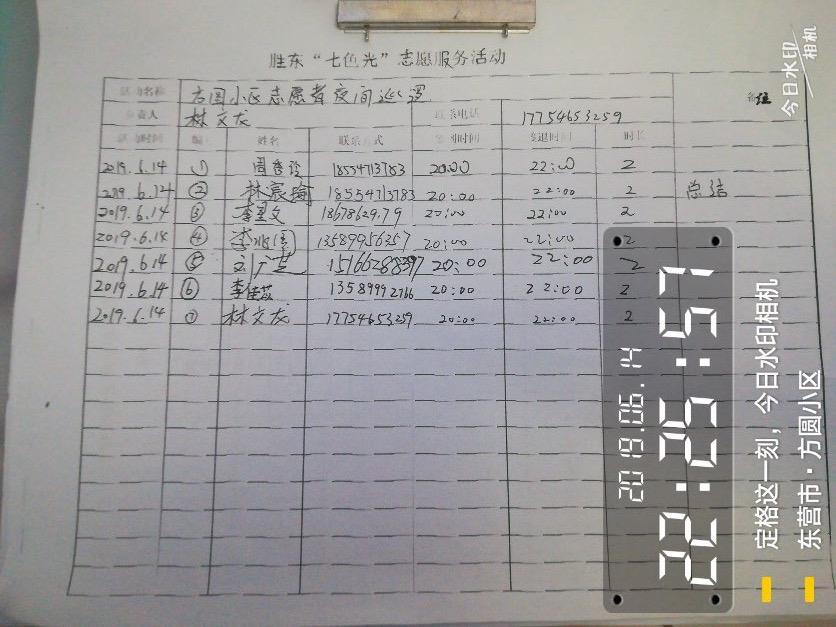 胜东“七色光”志愿服务活动
活动名称 方圆小区志愿者夜间巡逻 备注
负责人 林文龙 联系电话 17754653259
活动时间 编号 姓名 联系方式 签到时间 签退时间 时长
2019.6.14 ① 18554713783 20:00 22:00 2
2019.6.14 ② 林宸瑜 18554713783 20:00 22:00 2 总结
2019.6.14 ③ 20:00 22:00 2
2019.6.14 ④ 13589956357 20:00 22:00 2
2019.6.14 ⑤ 20:00 22:00 2
2019.6.14 ⑥ 李佳蕊 13589992766 20:00 22:00 2
2019.6.14 ⑦ 林文龙 17754653259 20:00 22:00 2
2019.06.14
22:25:57
定格这一刻，今日水印相机
东营市·方圆小区
今日水印
相机